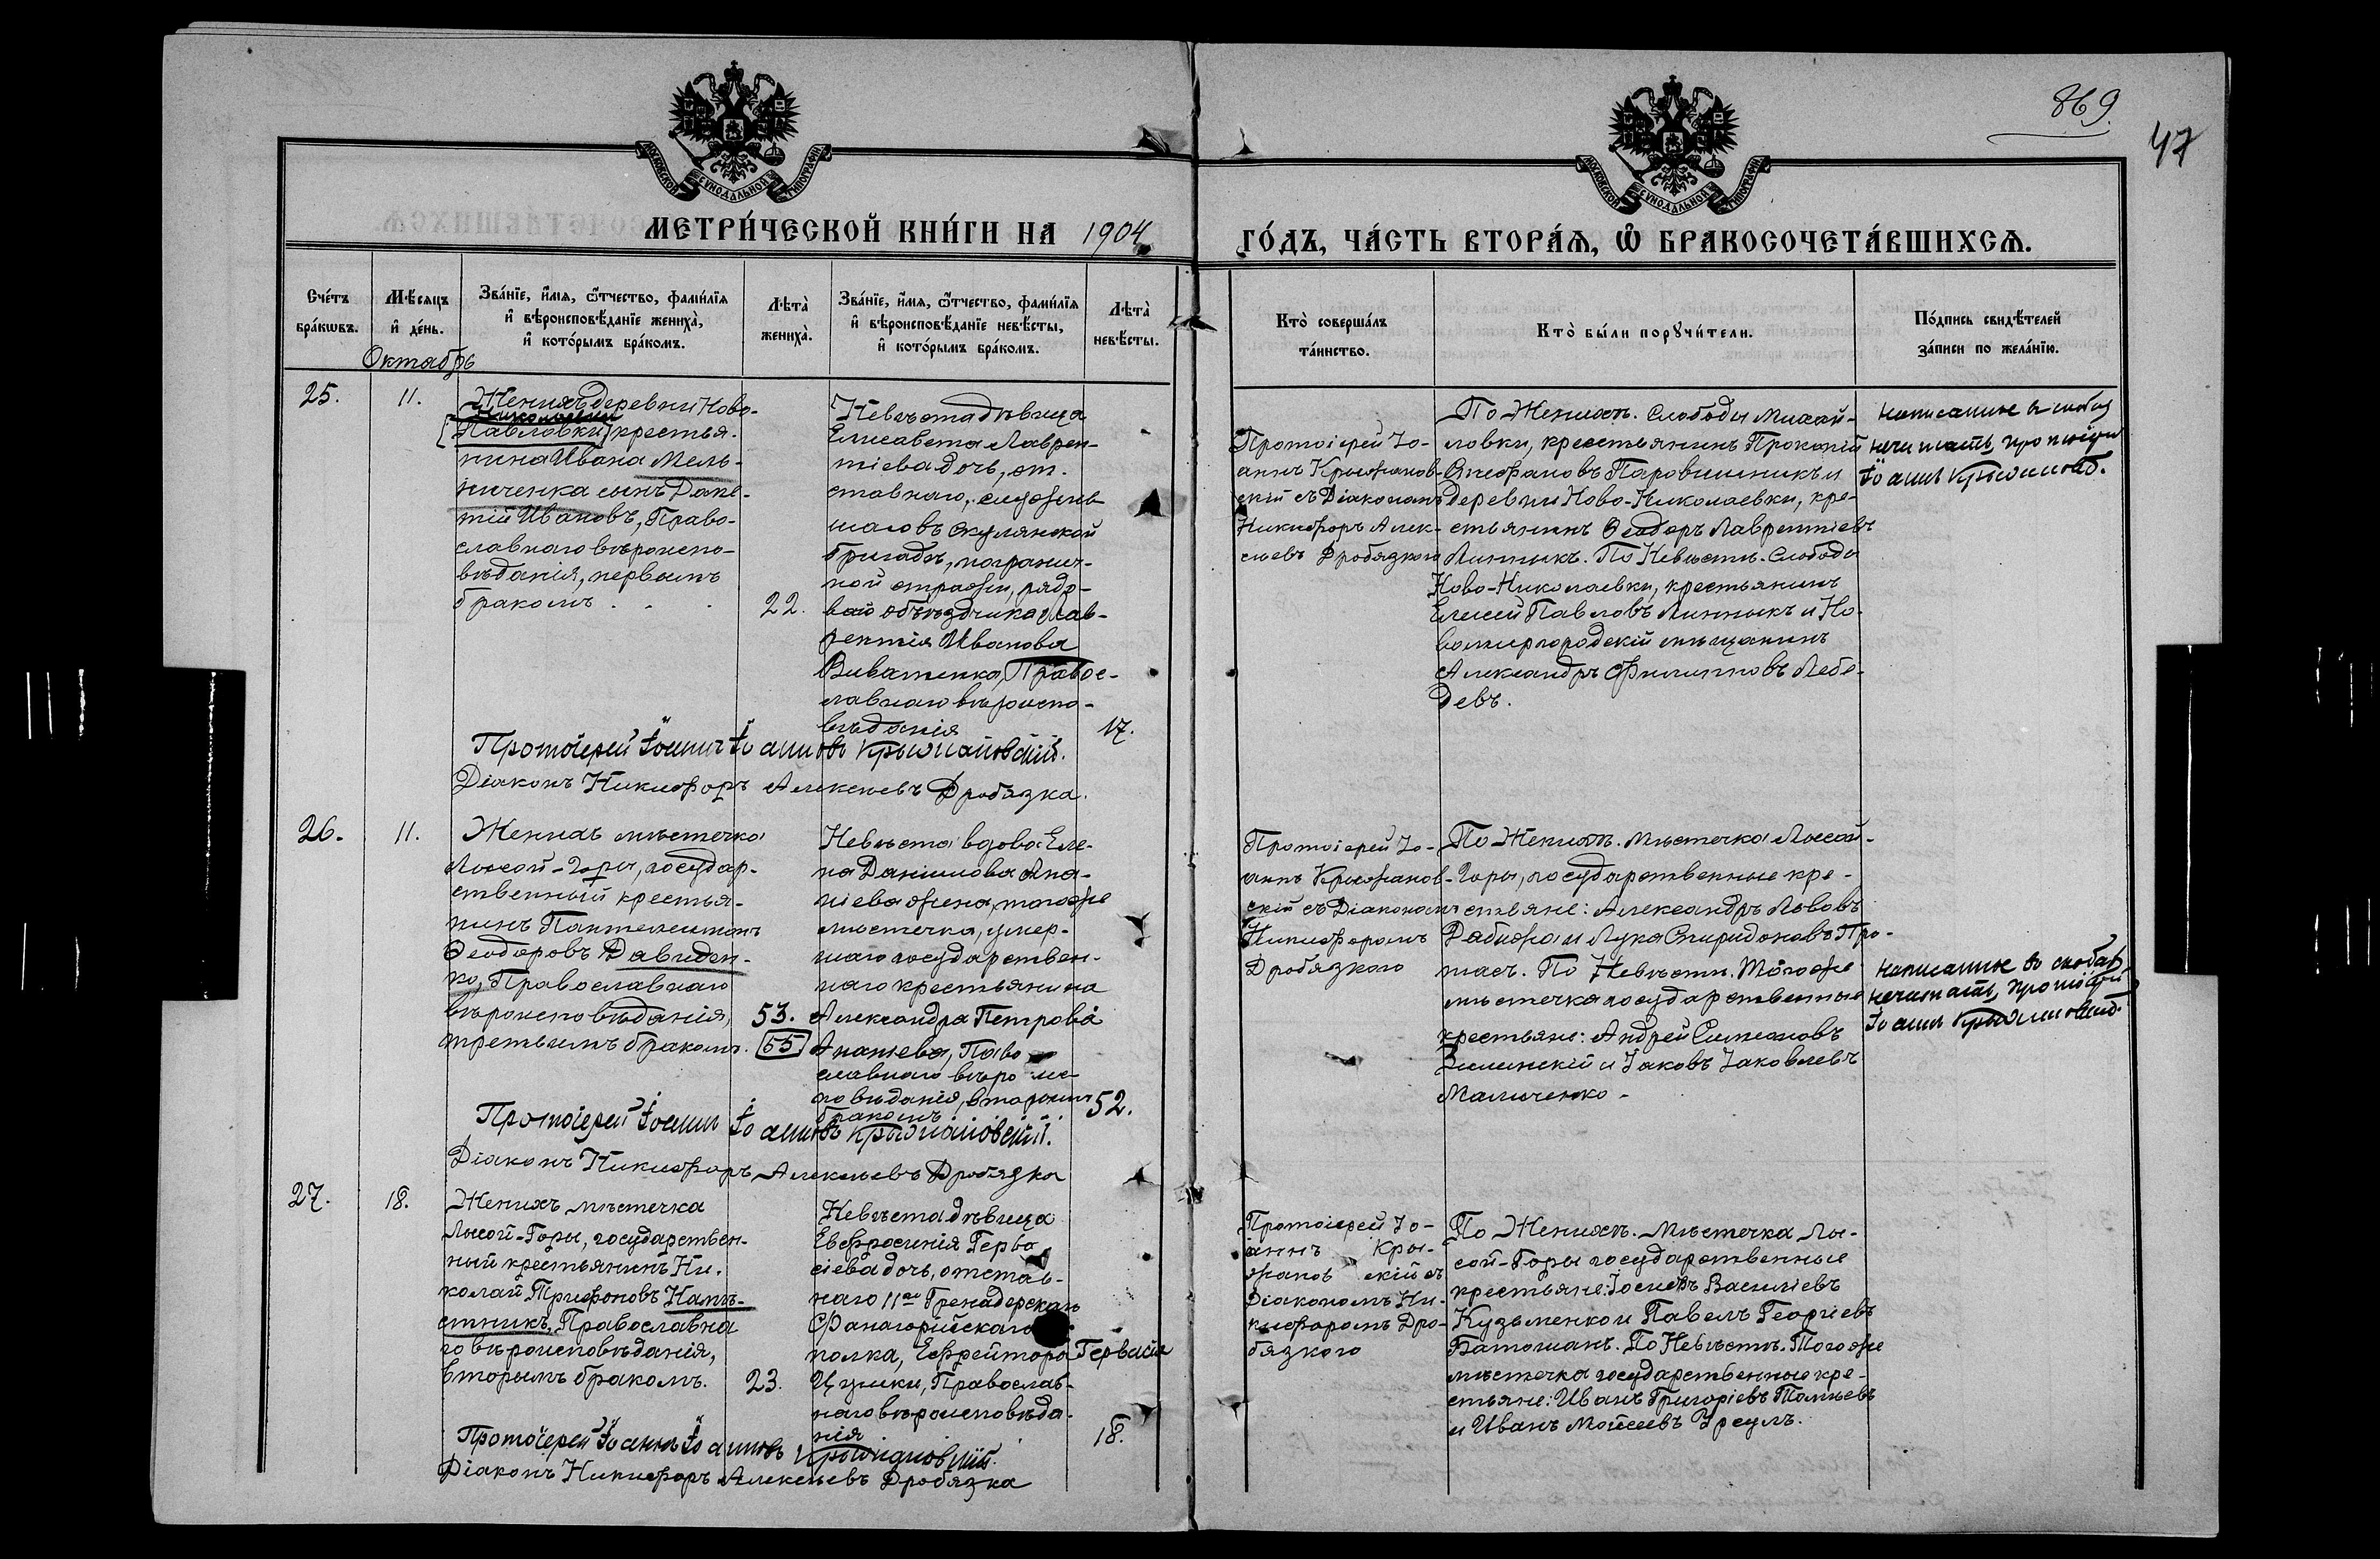 869
47
МОСКОВСКОЙ СѴНОДАЛЬНОЙ ТИПОГРАФІИ
МОСКОВСКОЙ СѴНОДАЛЬНОЙ ТИПОГРАФІИ
МЕТРИ́ЧЕСКОЙ КНИ́ГИ НА 1904
ГО́ДЪ, ЧА́СТЬ ВТОРА́Ѧ, Ѡ҆ БРАКОСОЧЕТА́ВШИХСѦ.
Сче́тъ
бра́кѡвъ.
Мѣ́сяцъ
и҆ де́нь.
Зва́нїе, и҆́мя, ѻ҆́тчество, фами́лїя
и҆ вѣроисповѣ́данїе жениха̀,
и҆ кото́рымъ бра́комъ.
Лѣта̀
жениха̀.
Зва́нїе, и҆́мя, ѻ҆́тчество, фами́лїя
и҆ вѣроисповѣ́данїе невѣ́сты,
и҆ кото́рымъ бра́комъ.
Лѣта̀
невѣ́сты.
Кто̀ соверша́лъ
та́инство.
Кто̀ бы́ли порꙋчи́тели.
По́дпись свидѣ́телей
за́писи по жела́нїю.
Октябрь
25.
11.
Женихъ деревни Ново-
Николаевки
[Павловки] крестья-
нина Ивана Мель-
ниченка сынъ
тій Ивановъ, Право-
славнаго вѣроиспо-
вѣданія, первымъ
бракомъ . . .
22.
Невѣста дѣвица
Елисавета Лаврен-
тіева дочь, от-
ставнаго, служив-
шаго въ Скулянской
бригадѣ, погранич-
ной стражи, рядо-
ваго объѣздчика Лав-
рентія Иванова
Православ-
лавнаго вѣроиспо-
вѣданія
17.
Протоіерей Іо-
аннъ Крыжанов-
скій съ Діакономъ
Никифоръ Алек-
сѣевъ Дробязкого
По Женихѣ. Слободы Михай-
ловки, крестьянинъ Прокопій
деревни Ново-Николаевки, кре-
стьянинъ Ѳеодоръ Лаврентіевъ
Линникъ. По Невѣстѣ. Слободы
Ново-Николаевки, крестьянинъ
Елисей Павловъ Линникъ и Но-
вомиргородскій мѣщанинъ
Александръ Филипповъ Лебе-
девъ.
написанное въ скобах
нечитать, протоіерей
Іоаннъ Крыжановс.
Протоіерей Іоаннъ Іоанновъ Крыжановскій.
Діаконъ Никифоръ Алексѣевъ Дробязка.
26.
11.
Женихъ мѣстечка
Лысой-Горы, государ-
ственный крестья-
нинъ Пантелеимонъ
Ѳеодоровъ Давиден-
ко, Православнаго
вѣроисповѣданія,
третьимъ бракомъ.
53.
[55]
Невѣста вдова Еле-
на Даніилова Ана-
ніева жена, тогоже
мѣстечка, умер-
шаго государствен-
наго крестьянина
Александра Петрова
Ананіева, Право
славнаго вѣро ис-
повѣданія, вторымъ
бракомъ
52.
Протоіерей Іо-
аннъ Крыжанов-
скій съ Діакономъ
Никифоромъ
Дробязкого
По Женихѣ. Мѣстечка Лысой-
Горы, государственные кре-
стьяне: Александръ Львовъ
и Лука Спиридоновъ
По Невѣстѣ. Тогоже
мѣстечка государственные
крестьяне: Андрей Симеоновъ
Зилинскій и Іаковъ Іаковлевъ
написанное въ скобах
нечитать, протоіерей
Іоаннъ Крыжановскій.
Протоіерей Іоаннъ Іоанновъ Крыжановскій.
Діаконъ Никифоръ Алексѣевъ Дробязка
27.
18.
Женихъ мѣстечка
Лысой-Горы, государствен-
ный крестьянинъ Ни-
колай Трифоновъ Намѣ-
стникъ, Православна
го вѣроисповѣданія,
вторымъ бракомъ.
23.
Невѣста дѣвица
Евфросинія Герва
сіева дочь, отстав-
наго 11го Гренадерскаго
Фанагорійскаго
полка, Ефрейтора Гервасія
Цуцики, Православ-
наго вѣроисповѣда-
нія
18.
Протоіерей Іо-
аннъ Кры-
жанов скій съ
Діакономъ Ни-
кифоромъ Дро-
бязкого
По Женихѣ. Мѣстечка Лы-
сой-Горы государственные
крестьяне: Іосифъ Василіевъ
Кузьменко и Павелъ Георгіевъ
Батошанъ. По Невѣстѣ. Тогоже
мѣстечка государственные кре-
стьяне: Иванъ Григоріевъ
и Иванъ Моисеевъ Урсулъ.
Протоіерей Іоаннъ Іоанновъ Крыжановскій.
Діаконъ Никифоръ Алексѣевъ Дробязка